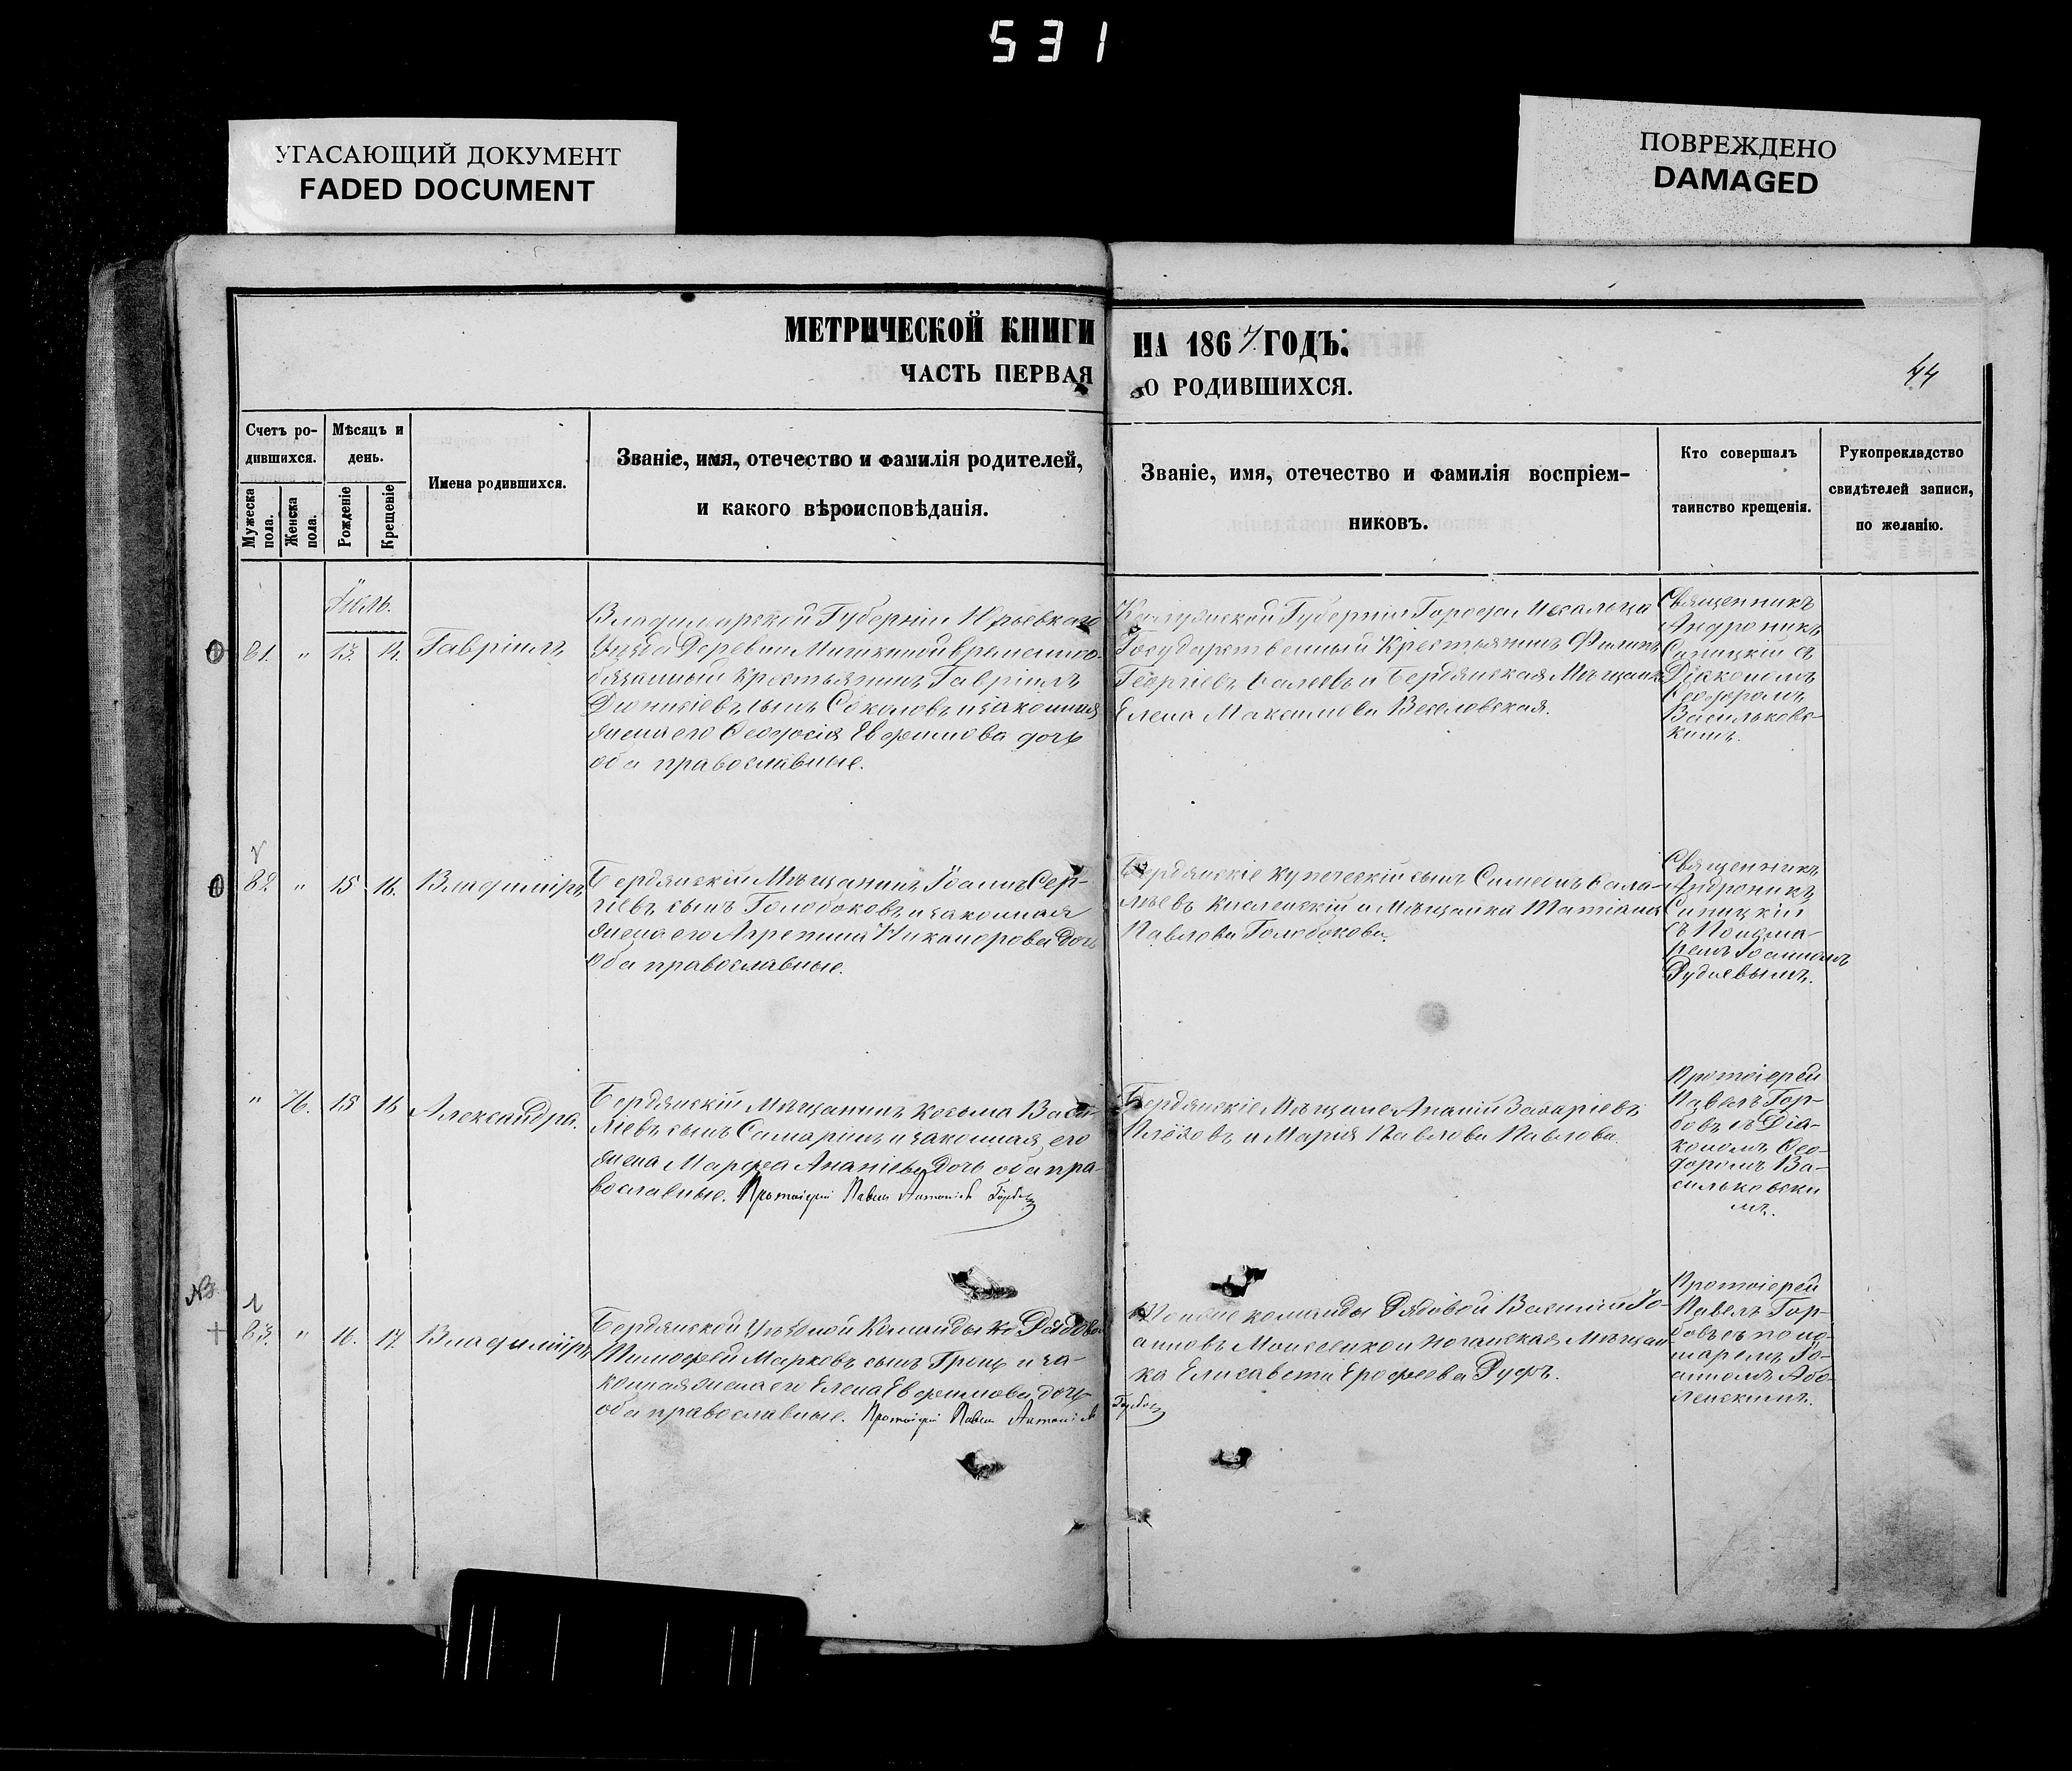 531
УГАСАЮЩИЙ ДОКУМЕНТ
FADED DOCUMENT
ПОВРЕЖДЕНО
DAMAGED
МЕТРИЧЕСКОЙ КНИГИ НА 1867 ГОДЪ.
ЧАСТЬ ПЕРВАЯ О РОДИВШИХСЯ.
44
Счетъ ро-
дившихся.
Мужеска пола.
Женска пола.
Мѣсяцъ и
день.
Рожденіе
Крещеніе
Имена родившихся.
Званіе, имя, отечество и фамилія родителей,
и какого вѣроисповѣданія.
Званіе, имя, отечество и фамилія воспріем-
никовъ.
Кто совершалъ
таинство крещенія.
Рукоприкладство
свидѣтелей записи,
по желанію.
Іюль.
81. " 13. 14. Гавріилъ
Владимирской Губерніи Юрьевскаго
Уѣзда Деревни временно-
обязанный Крестьянинъ Гавріилъ
Діонисіевъ сынъ Соколовъ и законная
жена его Ѳеодосія Евфимова дочь
оба православные.
Калужской Губерніи Города
Государственный Крестьянинъ Филипъ
Георгіевъ и Бердянская Мѣщанка
Елена Максимова Веселовская.
Священникъ
Андроникъ
Синицкій съ
Діакономъ
Ѳеодоромъ
Васильковс-
кимъ.
82. " 15 16. Владиміръ
Бердянскій Мѣщанинъ Іоаннъ Сер-
гіевъ сынъ Голобоковъ и законная
жена его Агрепина Никанорова дочь
оба православные.
Бердянскіе купеческій сынъ Симеонъ
и Мѣщанка Татіана
Павлова Голобокова.
Священникъ
Андроникъ
Синицкій
съ Понома-
ремъ Іоанномъ
" 76. 15 16 Александра.
Бердянскій Мѣщанинъ Косьма Васи-
ліевъ сынъ Самаринъ и законная его
жена Марфа Ананіева дочь оба пра-
вославные. Протоіерей Павелъ Антоніевъ Горбовъ
Бердянскіе Мѣщане Ананій Захаріевъ
и Марія Павлова Павлова.
Протоіерей
Павелъ Гор-
бовъ съ Діа-
кономъ Ѳео-
доромъ Ва-
сильковски
мъ.
NB
83. " 16. 17. Владиміръ
Бердянской Уѣздной Команды Рядовой
Тимофей Марковъ сынъ Гронь и за-
конная жена его Елена Евфимова дочь
оба православные. Протоіерей Павелъ Антоніевъ
Горбовъ
команды Рядовой Василій Іо-
анновъ Моисеенко и Ногайская Мѣщан-
ка Елисавета Ерофеева
Протоіерей
Павелъ Гор-
бовъ съ поно-
маремъ Іо-
анномъ Або-
ленскимъ.